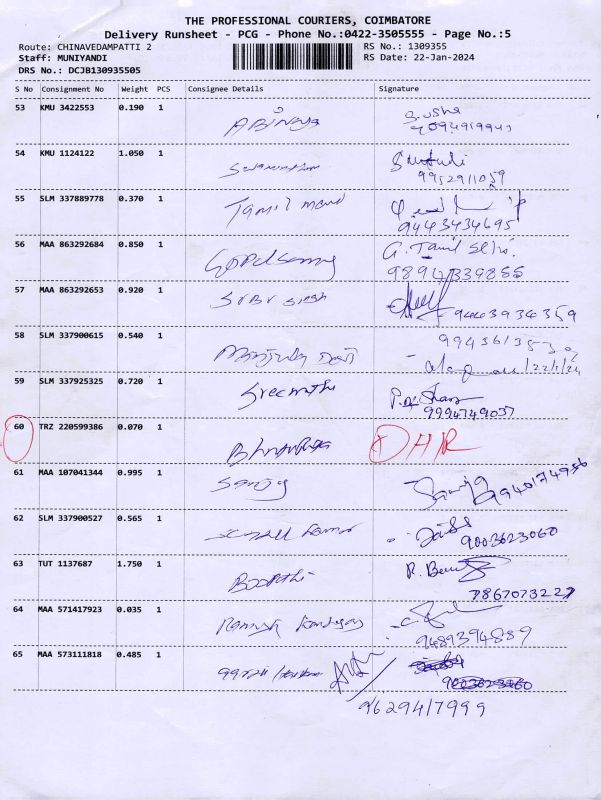 THE PROFESSIONAL COURIERS, COIMBATORE
Delivery Runsheet - PCG - Phone No.:0422-3505555 - Page No.:5
Route: CHINAVEDAMPATTI 2 RS No.: 1309355
Staff: MUNIYANDI RS Date: 22-Jan-2024
DRS No.: DCJB130935505
S No Consignment No Weight PCS Consignee Details Signature
53 KMU 3422553 0.190 1
54 KMU 1124122 1.050 1
9952911059
55 SLM 337889778 0.370 1 Tamil
9443434695
56 MAA 863292684 0.850 1 G. Tamil Selvi.
9894339855
57 MAA 863292653 0.920 1
9443934359
58 SLM 337900615 0.540 1
Manjula Devi
59 SLM 337925325 0.720 1 Sreemathi
9994749037
60 TRZ 220599386 0.070 1 DHR
61 MAA 107041344 0.995 1 Sanjay 9940174956
62 SLM 337900527 0.565 1
9003623060
63 TUT 1137687 1.750 1
Boopathi
7867073227
64 MAA 571417923 0.035 1
Ramesh
9489394889
65 MAA 573111818 0.485 1
9003623060
9629417999